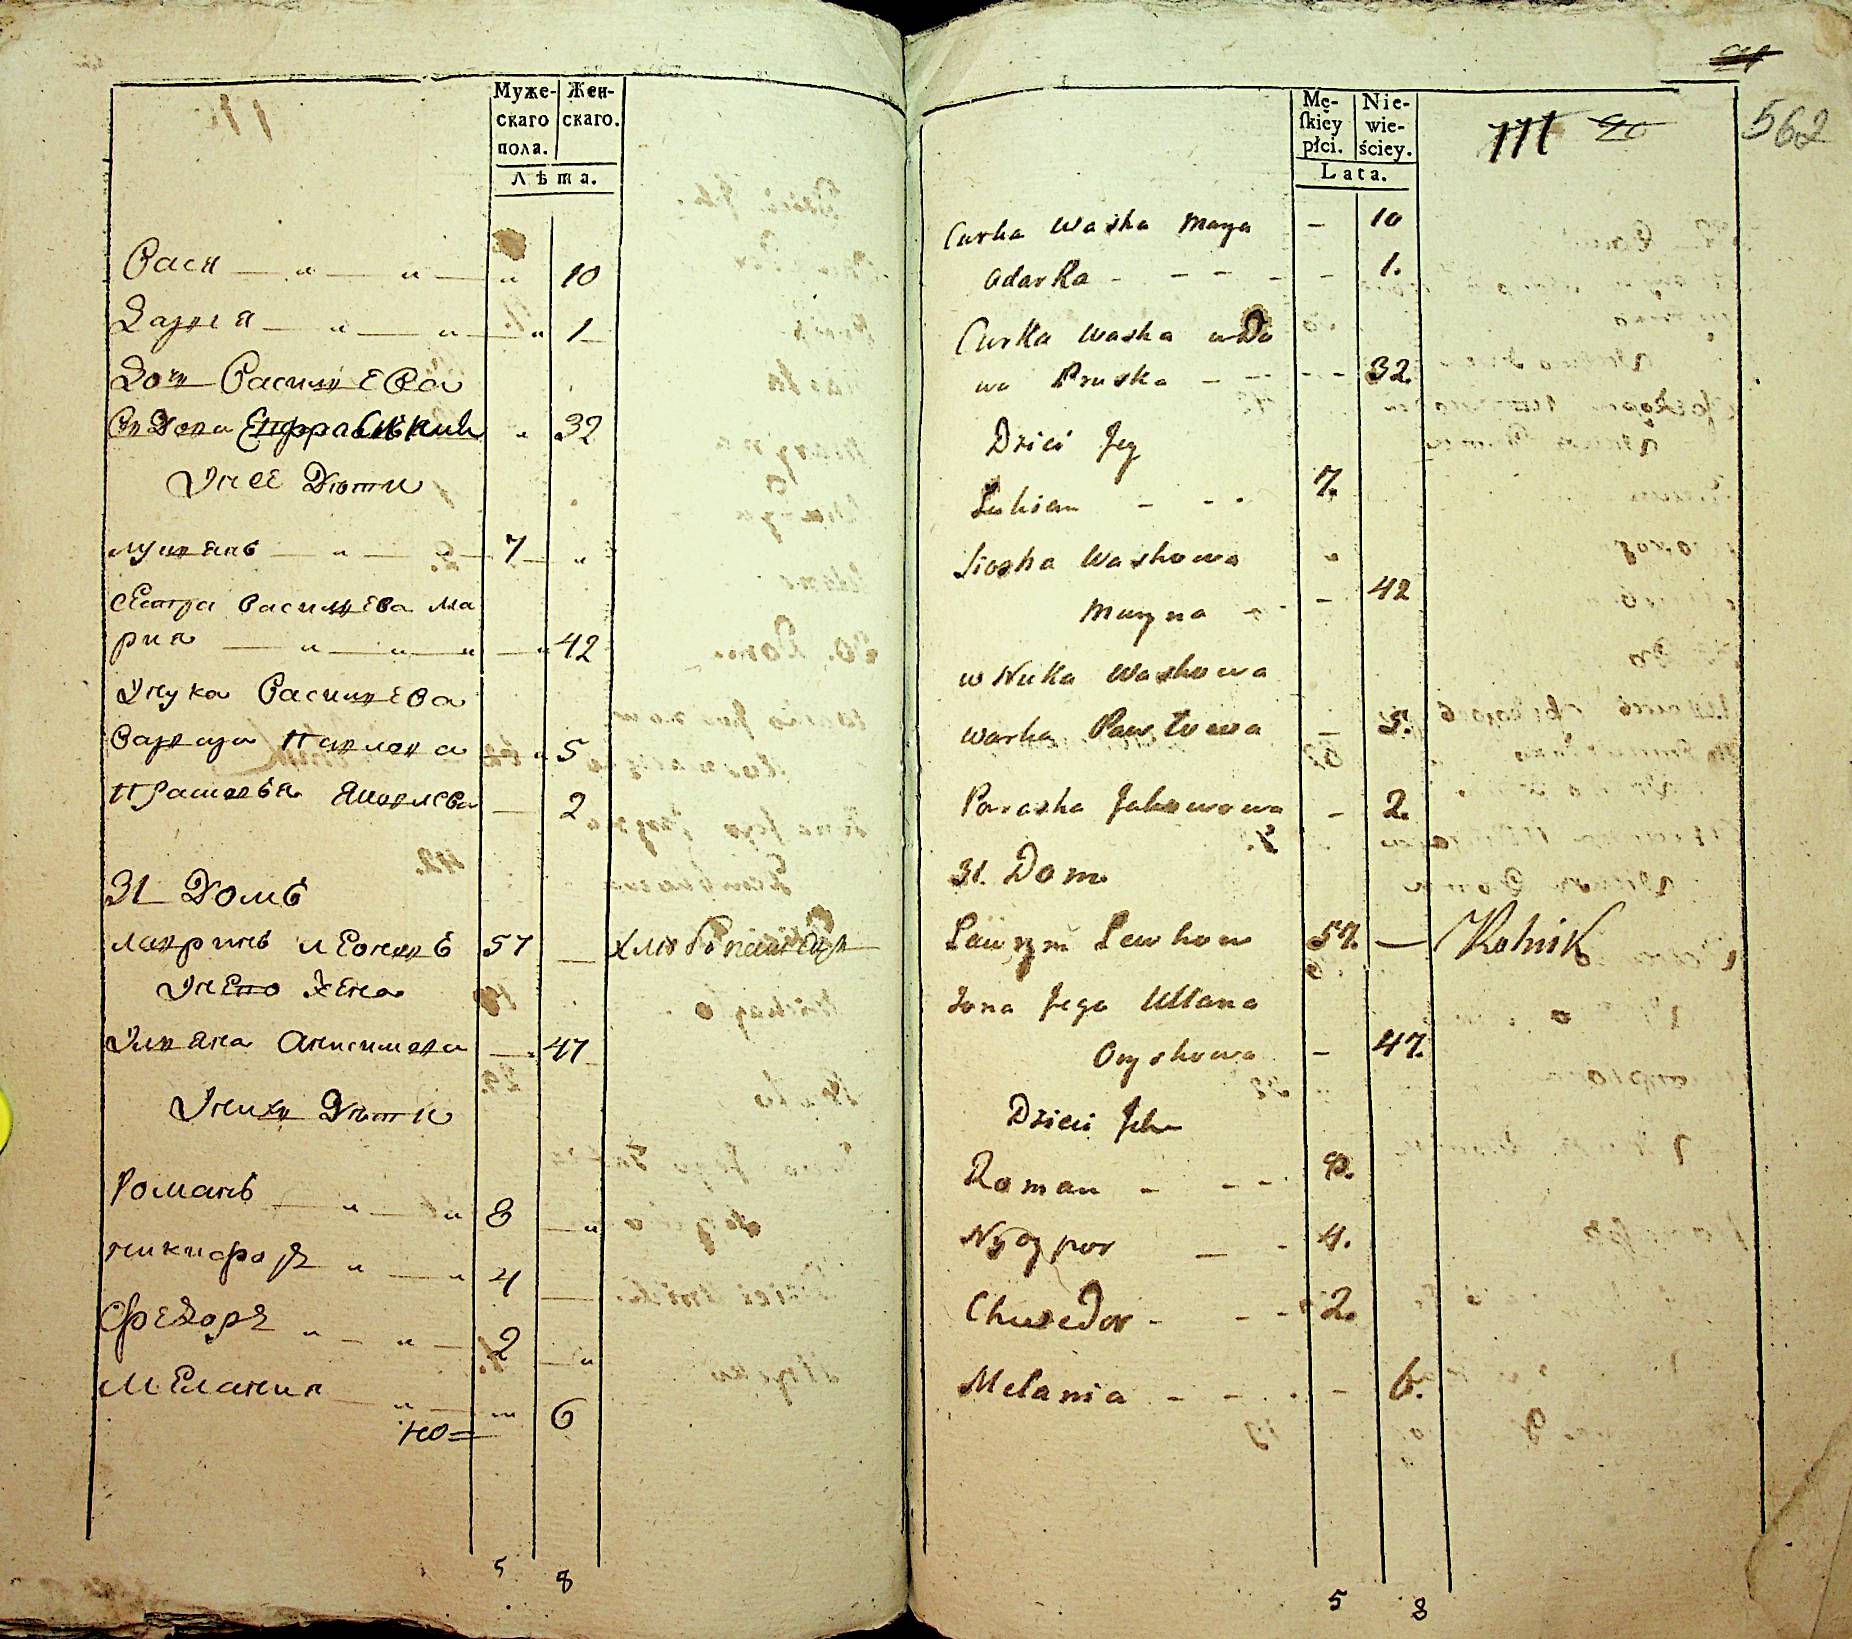 Муже-
скаго
пола.
Жен-
скаго.
Лѣта.
10
Дарья 1
Дочь Василева
вдова 32
Унее Дѣти
Лукянъ 7
Сестра Василева Ма
рия 42
Унука Василева
Варвара Павлова 5
Прасковья Яковлева 2
31 Домъ
Лавринъ Леоновъ 57 хлѣбопашецъ
Унего Жена
Улияна Анисимова 47
Унихъ Дѣти
Романъ 8
Никифоръ 4
Федоръ 2
Мелания 6
5 8
Mę-
skiey
płci.
Nie-
wie-
ściey.
Lata.
111
562
Curka Waśka Marya - 10
Adarka - - - - - 1.
Curka Waśka wdo
wa Pruska - - - - 32.
Dzieci Jey
Lukian - - - 7.
Siostra Waskowa
Maryna - - 42
wnuka Waskowa
Warka Pawłowa - 5.
Paraska Jakowowa - 2.
31. Dom
Ławryn Lewkow 57. — Rolnik
Żona Jego Ullana
Oryskowa - 47.
Dzieci Jch
Roman - - - 8.
Nyczypor - - 4.
Chwedor - - - 2.
Melania - - - - 6.
5 8